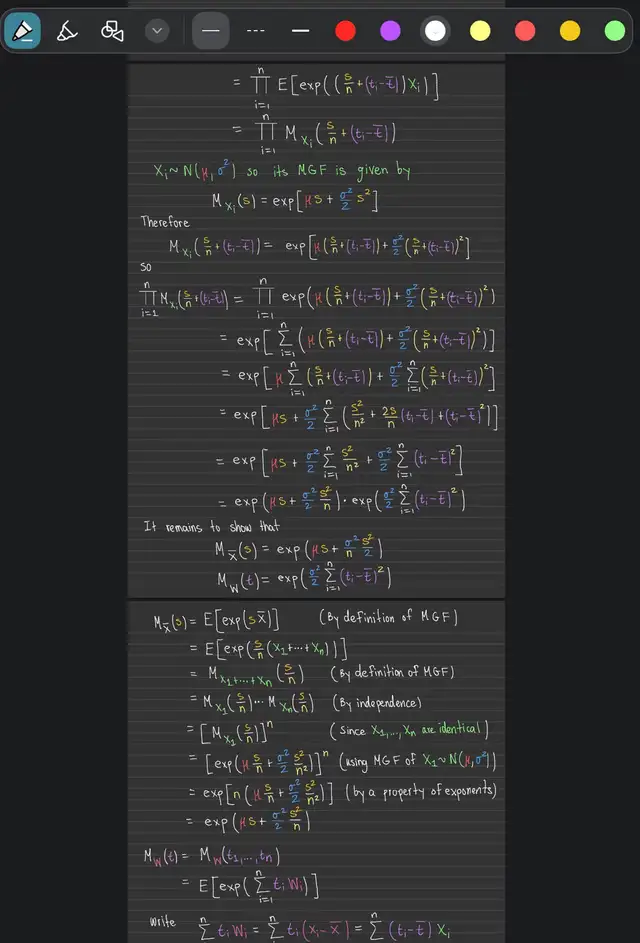 = ∏_{i=1}^{n} E[exp((s/n + (t_i - t̄)) X_i)]
= ∏_{i=1}^{n} M_{X_i}(s/n + (t_i - t̄))
X_i ~ N(μ, σ²) so its MGF is given by
M_{X_i}(s) = exp[μs + σ²/2 s²]
Therefore
M_{X_i}(s/n + (t_i - t̄)) = exp[μ(s/n + (t_i - t̄)) + σ²/2 (s/n + (t_i - t̄))²]
so
∏_{i=1}^{n} M_{X_i}(s/n + (t_i - t̄)) = ∏_{i=1}^{n} exp(μ(s/n + (t_i - t̄)) + σ²/2 (s/n + (t_i - t̄))²)
= exp[∑_{i=1}^{n} (μ(s/n + (t_i - t̄)) + σ²/2 (s/n + (t_i - t̄))²)]
= exp[μ ∑_{i=1}^{n} (s/n + (t_i - t̄)) + σ²/2 ∑_{i=1}^{n} (s/n + (t_i - t̄))²]
= exp[μs + σ²/2 ∑_{i=1}^{n} (s²/n² + 2s/n (t_i - t̄) + (t_i - t̄)²)]
= exp[μs + σ²/2 ∑_{i=1}^{n} s²/n² + σ²/2 ∑_{i=1}^{n} (t_i - t̄)²]
= exp(μs + σ²/2 s²/n) · exp(σ²/2 ∑_{i=1}^{n} (t_i - t̄)²)
It remains to show that
M_X̄(s) = exp(μs + σ²/n s²/2)
M_W(t) = exp(σ²/2 ∑_{i=1}^{n} (t_i - t̄)²)
M_X̄(s) = E[exp(sX̄)] (By definition of MGF)
= E[exp(s/n (X_1 + ··· + X_n))]
= M_{X_1 + ··· + X_n}(s/n) (By definition of MGF)
= M_{X_1}(s/n) ··· M_{X_n}(s/n) (By independence)
= [M_{X_1}(s/n)]^n (since X_1, ..., X_n are identical)
= [exp(μ s/n + σ²/2 s²/n²)]^n (using MGF of X_1 ~ N(μ, σ²))
= exp[n(μ s/n + σ²/2 s²/n²)] (by a property of exponents)
= exp(μs + σ²/2 s²/n)
M_W(t) = M_W(t_1, ..., t_n)
= E[exp(∑_{i=1}^{n} t_i W_i)]
write ∑_{i=1}^{n} t_i W_i = ∑_{i=1}^{n} t_i (X_i - X̄) = ∑^{n} (t_i - t̄) X_i